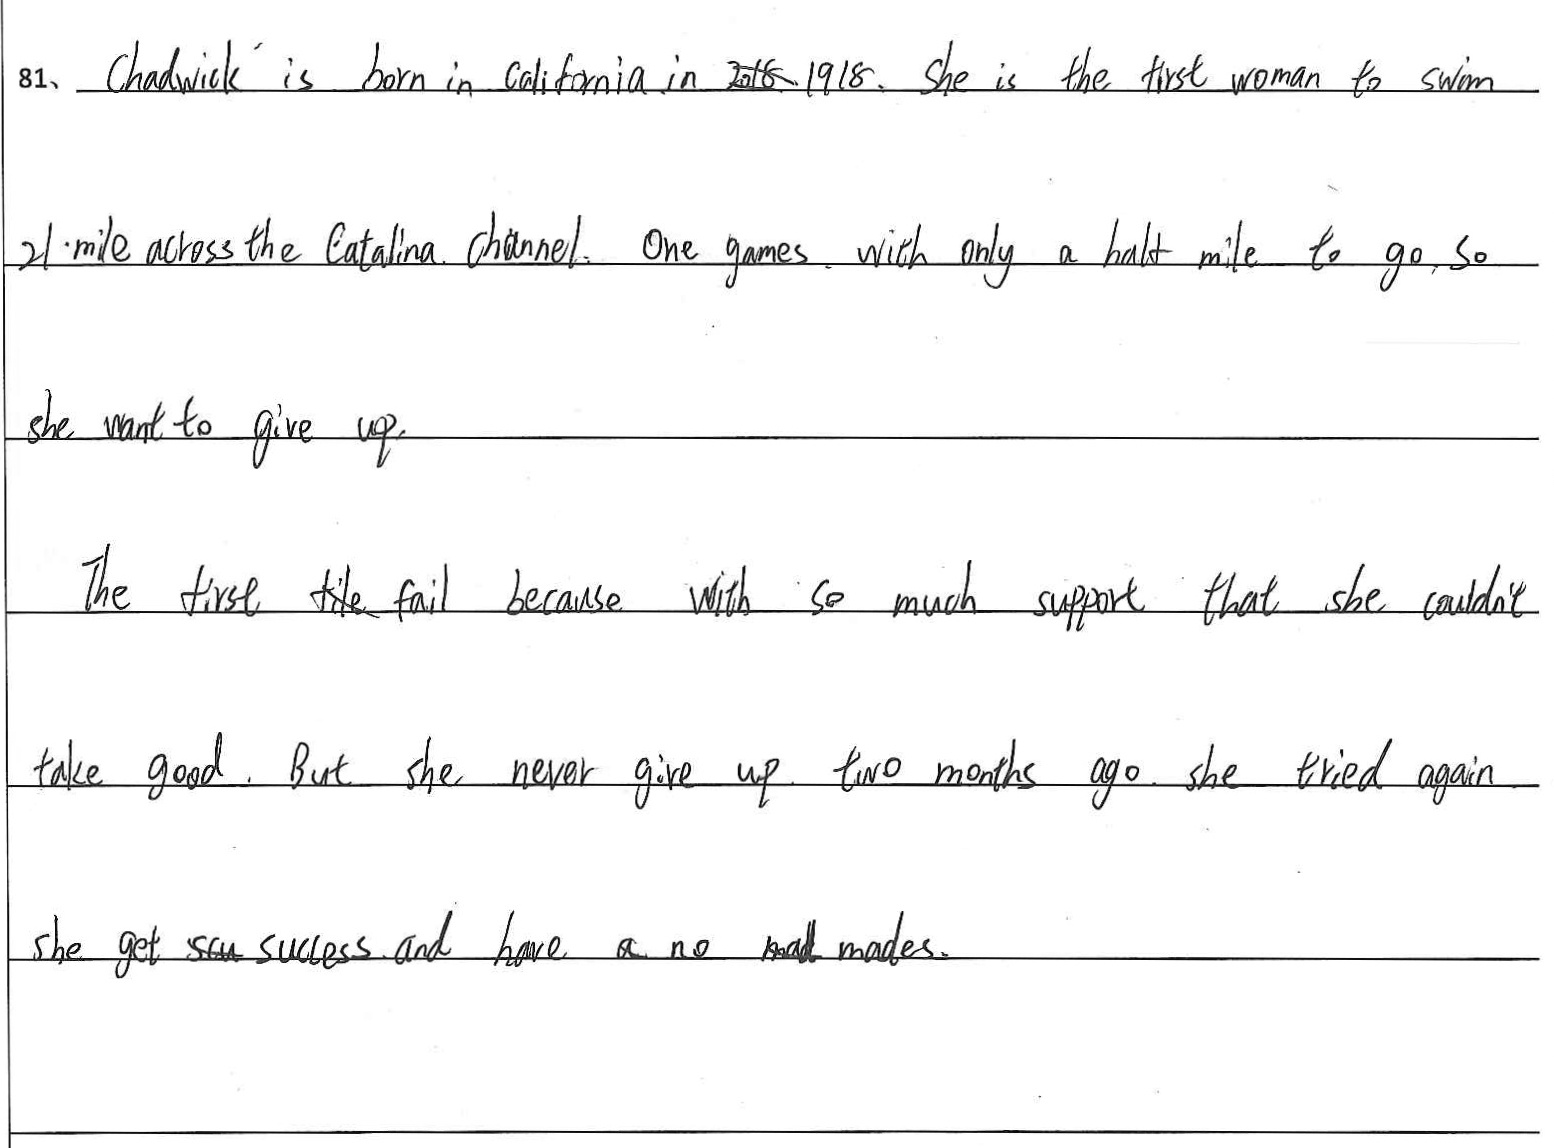 81、 Chadwick is born in California in 1918. She is the first woman to swim
21 mile across the Catalina Channel. One games. with only a half mile to go, so
she want to give up.
The first fail because with so much support that she couldn't
take good. But she never give up two months ago. she tried again
she get success and have a no mades.